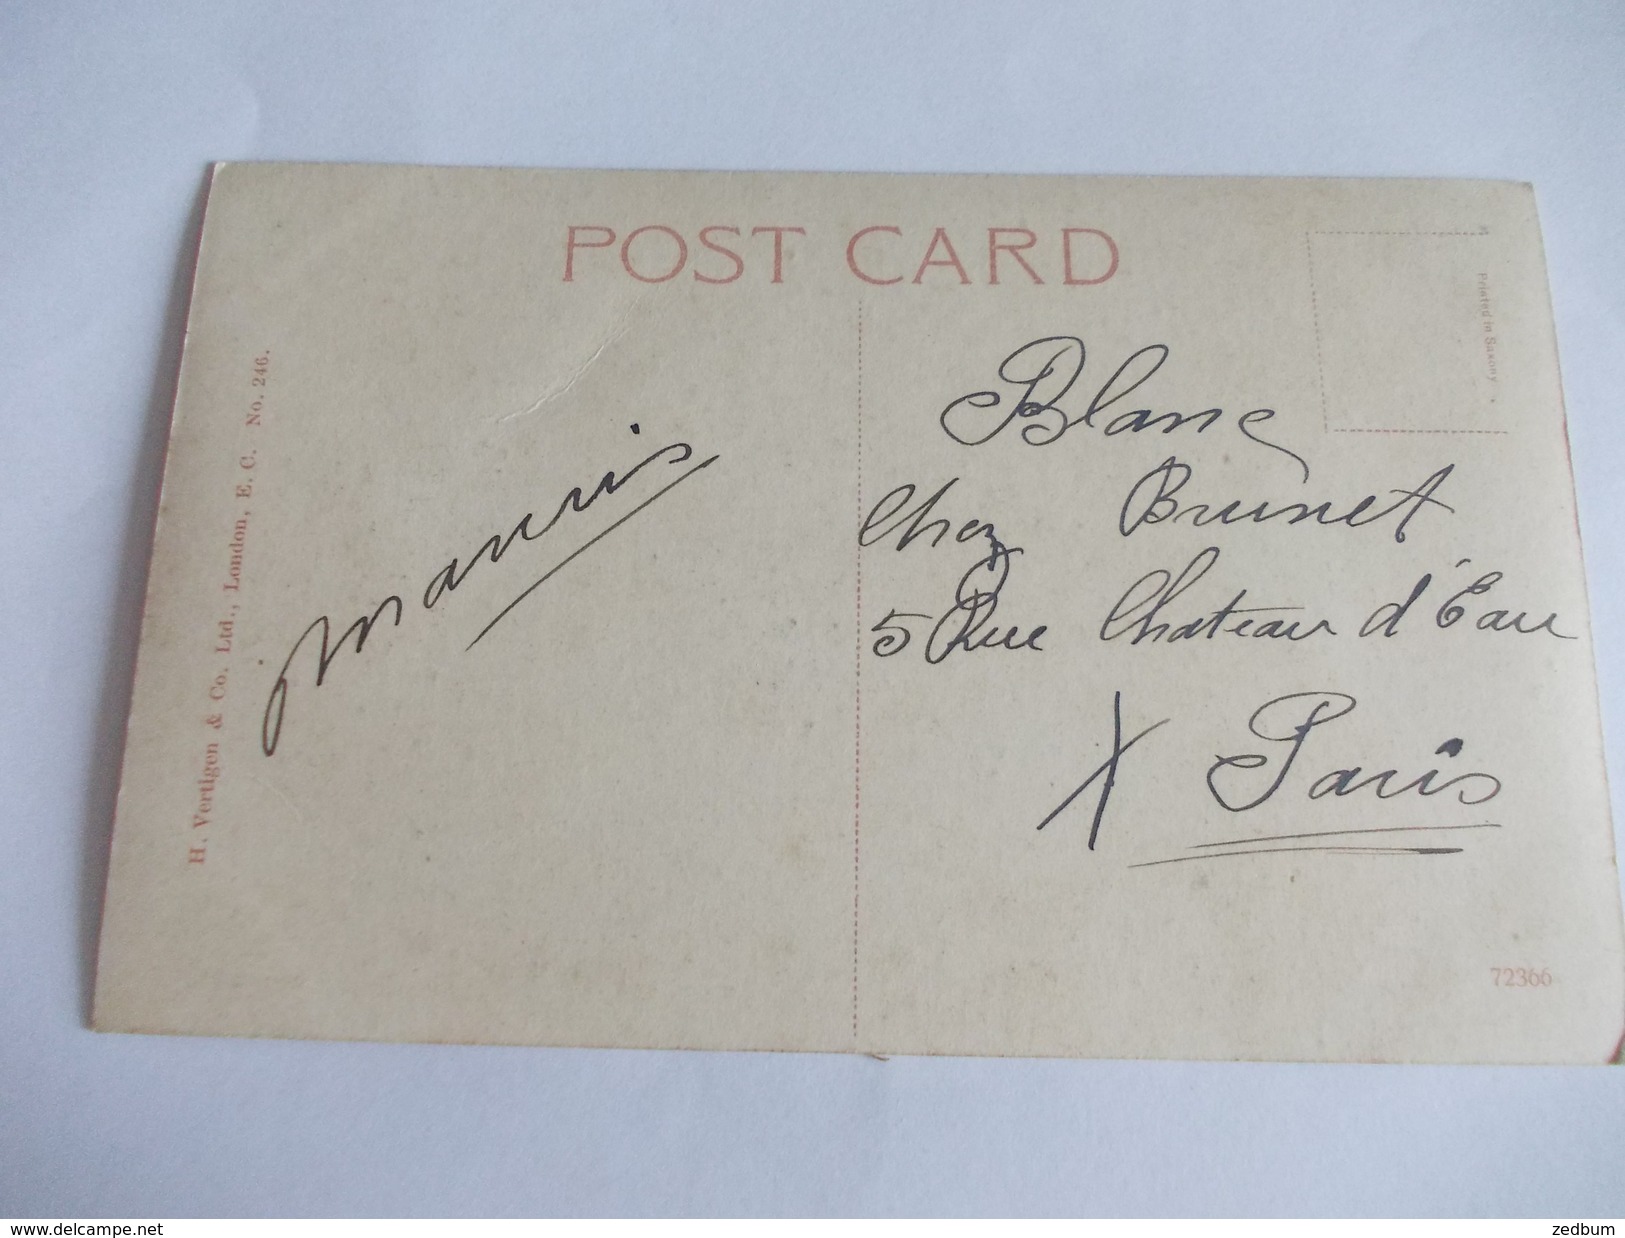 POST CARD
Printed in Saxony
H. Vertigen & Co. Ltd., London, E. C. No. 246.
Blanc
Chez Brunet
5 Rue Chateau d'Eau
X Paris
72366
www.delcampe.net
zedbum